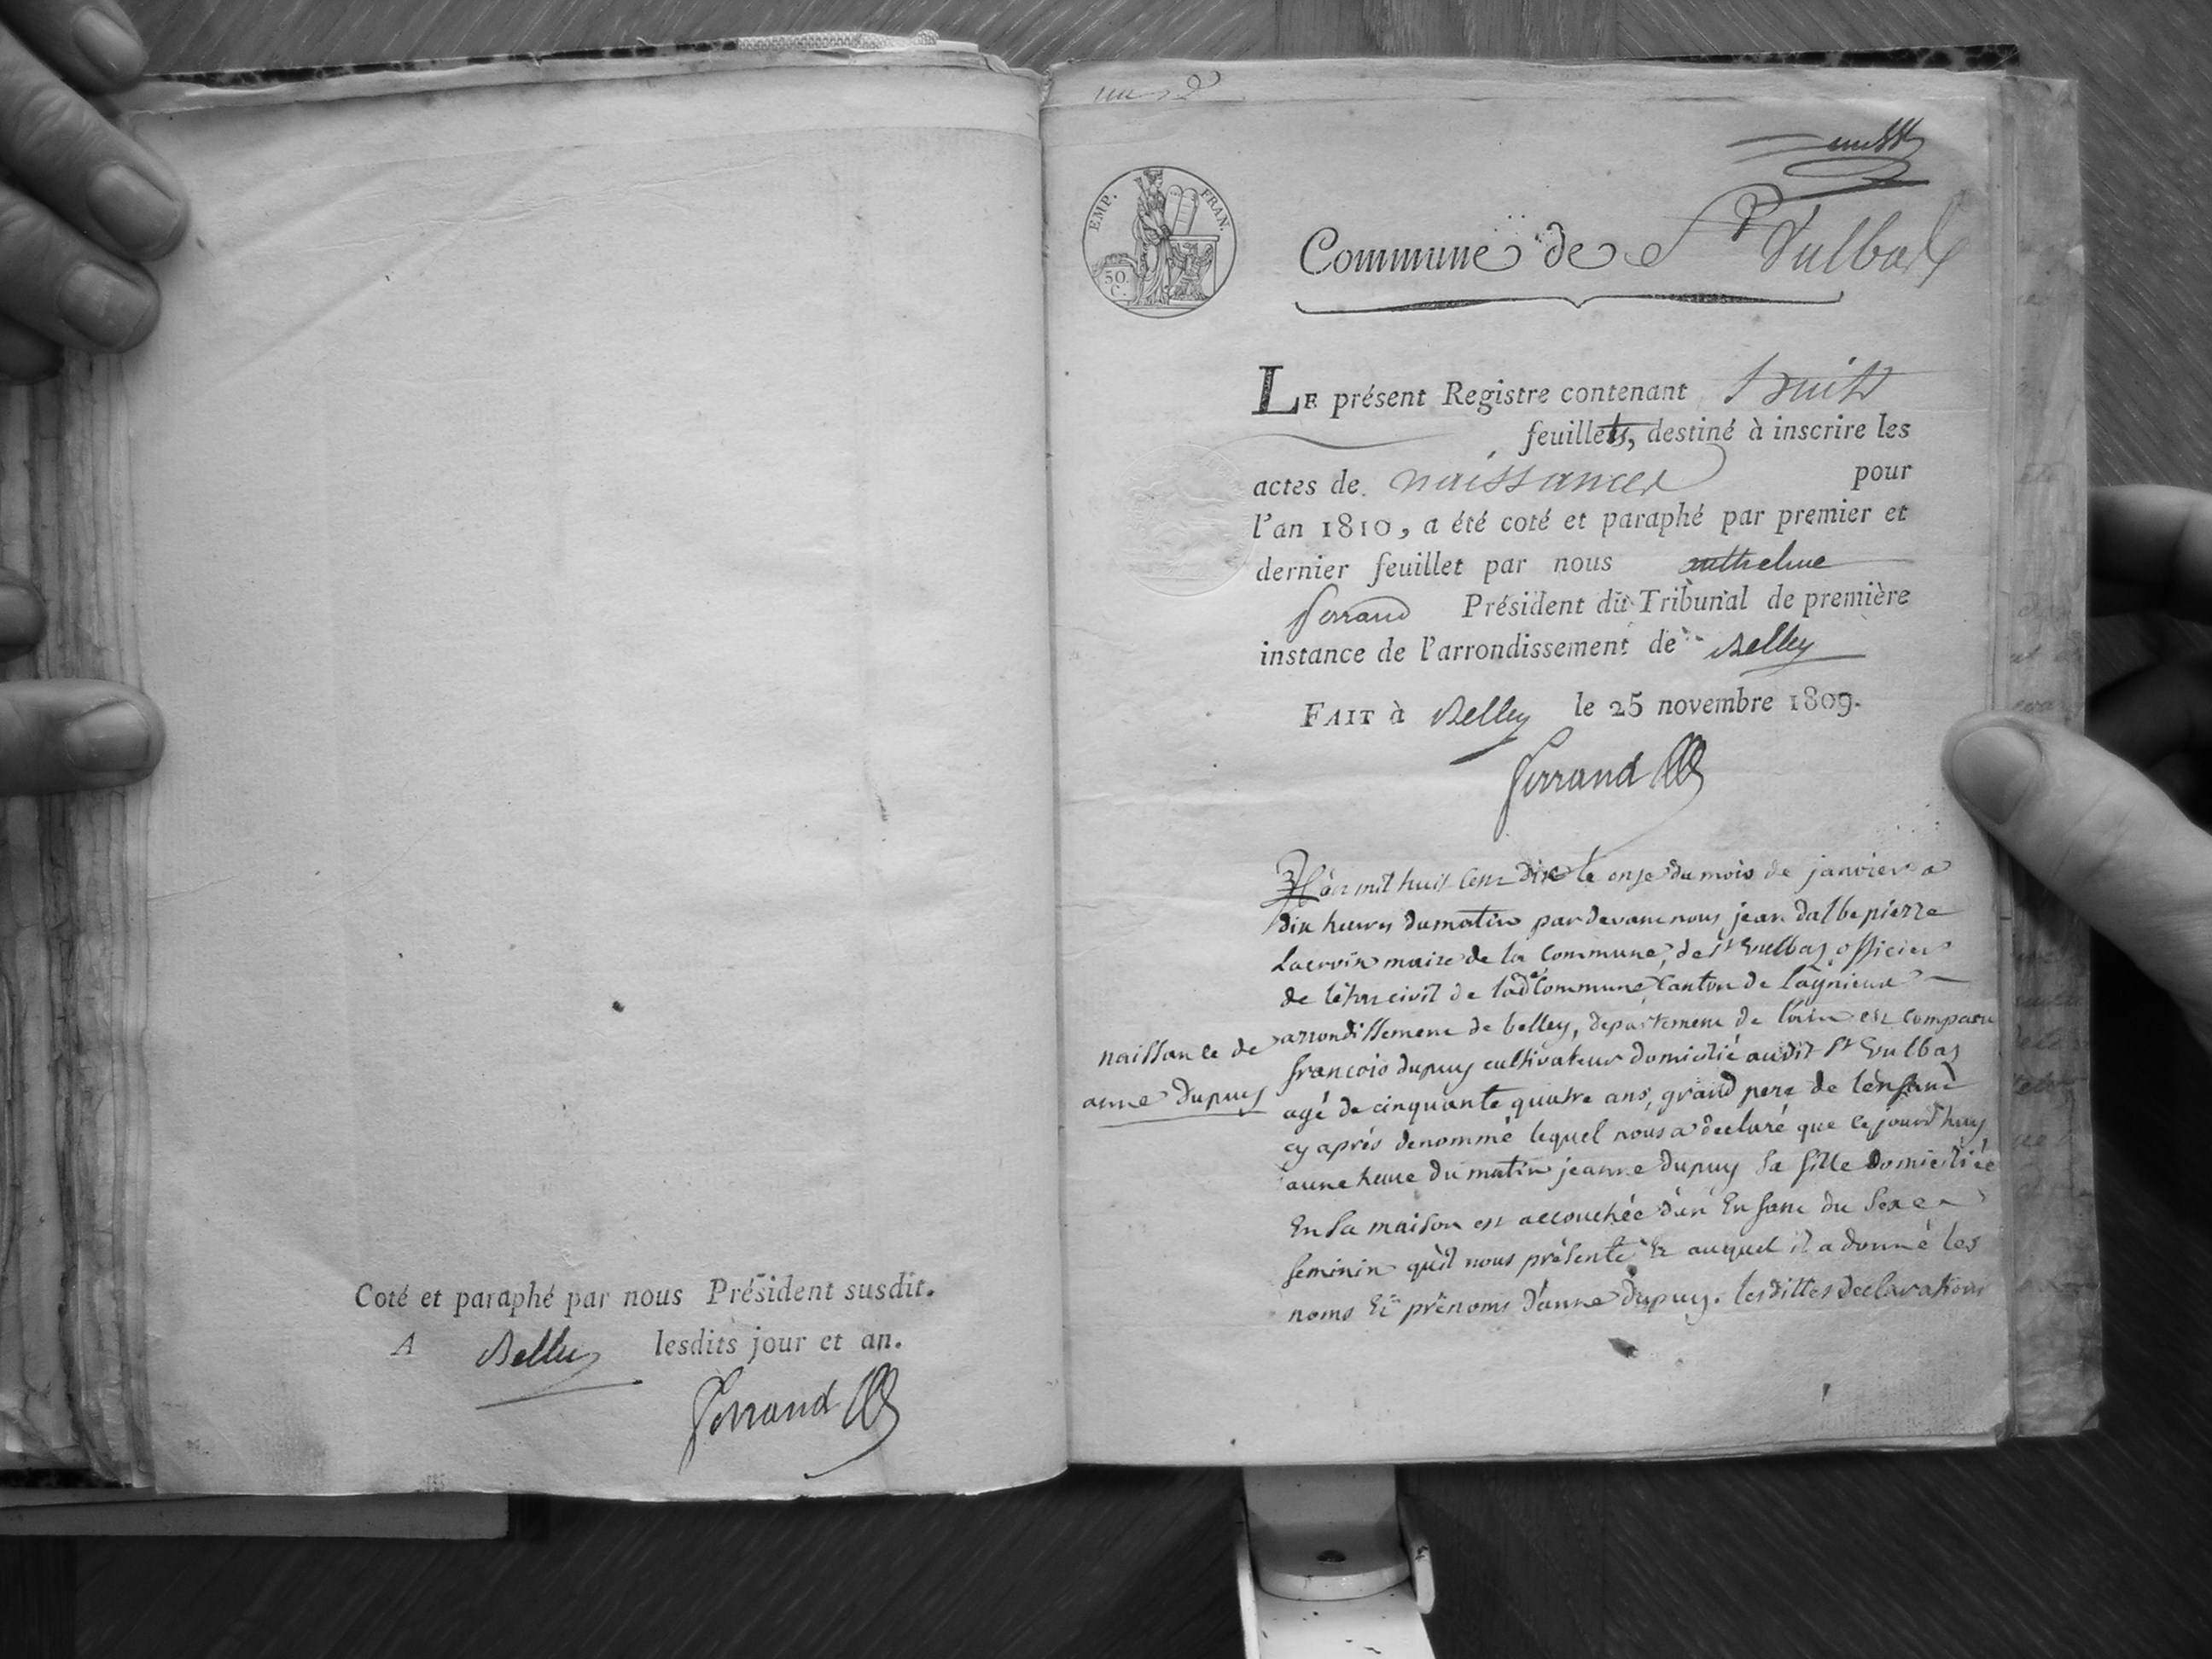 Coté et paraphé par nous Président susdit.
A Belley lesdits jour et an.
Ferrand
EMP. FRAN.
50.
C.
Commune de St Vulbas
LE présent Registre contenant huit
feuillets, destiné à inscrire les
actes de naissances pour
l'an 1810, a été coté et paraphé par premier et
dernier feuillet par nous anthelme
ferrand Président du Tribunal de première
instance de l'arrondissement de Belley
FAIT à Belley le 25 novembre 1809.
Ferrand
L'an mil huit Cent dix le onze du mois de janvier a
dix heures du matin par devant nous jean dalbepierre
Lacroix maire de la Commune, de St Vulbas officier
de l'état civil de lade Commune Canton de lagnieux
arrondissement de belley, departement de lain est comparu
naissance de
anne Dupuy
francois dupuy cultivateur domicilié audit St Vulbas
agé de cinquante quatre ans, grand pere de lenfant
cy aprés denommé lequel nous a declaré que cejourd'huy
a une heure du matin jeanne dupuy sa fille domiciliée
En sa maison est accouchée d'un Enfant du Sexe
feminin qu'il nous présente Et auquel il a donné les
noms Et prénoms d'anne dupuy. lesdittes declarations